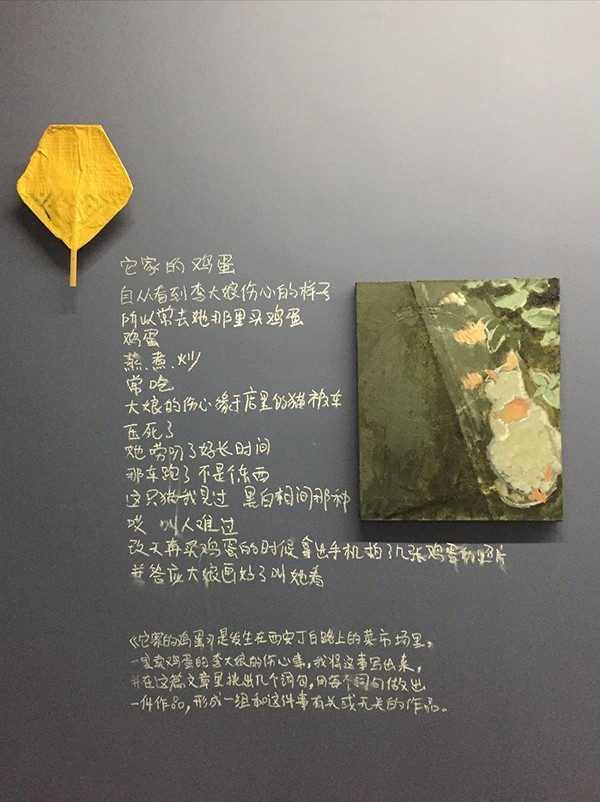 它家的鸡蛋
自从看到李大娘伤心的样子
所以常去她那里买鸡蛋
鸡蛋
蒸.煮.炒
常吃
大娘的伤心缘于店里的猫被车
压死了
她唠叨了好长时间
那车跑了不是个东西
这只猫我见过 黑白相间那种
哎 叫人难过
改天再买鸡蛋的时候拿出手机拍了几张鸡蛋的照片
并答应大娘画好了叫她看
《它家的鸡蛋》是发生在西安丁白路上的菜市场里,
一家卖鸡蛋的李大娘的伤心事,我将这事写出来,
并在这篇文章里挑出几个词句,用每个词句做出
一件作品,形成一组和这件事有关或无关的作品。